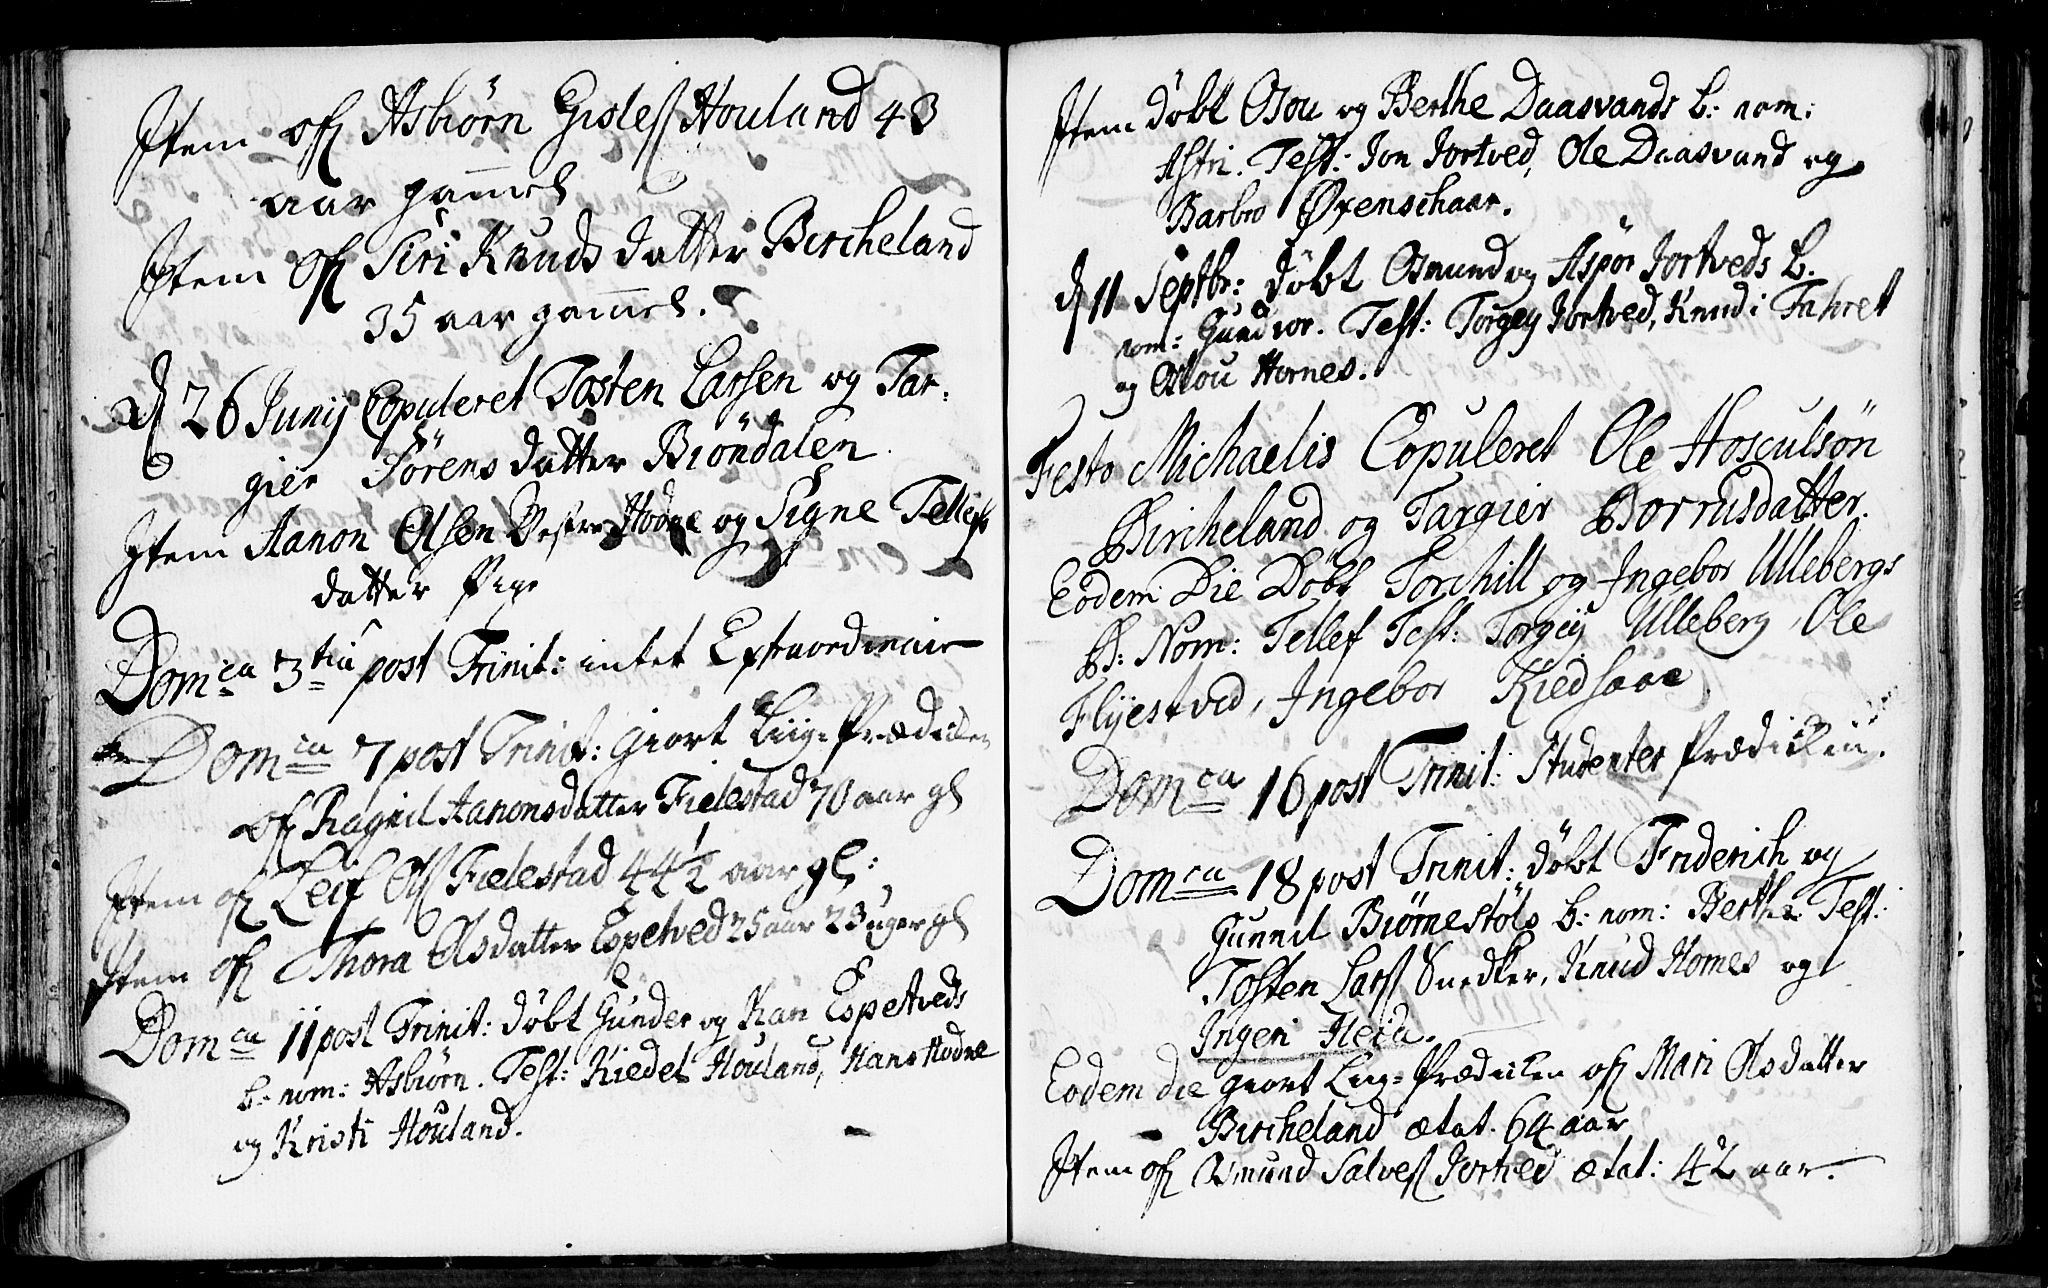 Item of Asbiörn Gisles Houland 43
aar gam̄el
Item of Siri Knuds datter Bircheland
35 aar gam̄el.
d 26 Junij Copuleret Tosten Larsen og Tar-
gier Sörens datter Biöndalen.
Item Aanon Olsen Vestre Hodne og Signe Tellefs
datter Pige
Domca 3tia post Trinit: intet Extraordinair
Domca 7 post Trinit: giort Liig-Prædiken
of Ragnil Aanonsdatter Fielestad 70 aar gl
Item of Leif Ols Fielestad 44½ aar gl:
Item of Thora Olsdatter Espetved 25 aar 23 uger gl
Domca 11 post Trinit: döbt Gunder og Kari Espetveds
b: nom: Asbiörn. Test: Kiedel Houland, Hans Hodne
og Kristi Houland.
Item döbt Osou og Berthe Daasvands b: nom:
Astri. Test: Jon Jortved, Ole Daasvand og
Barbro Øxenschaar.
d 11 Septbr: döbt Osmund og Aspör Jortveds b.
nom: Gundvor. Test: Torgey Jortved, Knud i Fahret
og Osou Hornes.
Festo Michaelis Copuleret Ole Hosculsön
Bircheland og Targier Borrusdatter.
Eodem Die Döbt Torchill og Ingebor Ullebergs
B: Nom: Tellef Test: Torgey Ulleberg, Ole
Flijestved, Ingebor Kiedsaae
Domca 16 post Trinit: Studenter Prædicken.
Domca 18 post Trinit: döbt Friderich og
Gunnil Biörnestöls b: nom: Berthe Test:
Tosten Lars Snedker, Knud Homes og
Ingeri Fleia.
Eodem die giort Liig-Prædicken of Mari Olsdatter
Bircheland ætat. 64 aar
Item of Osmund Salves Jortved ætat: 42 aar.